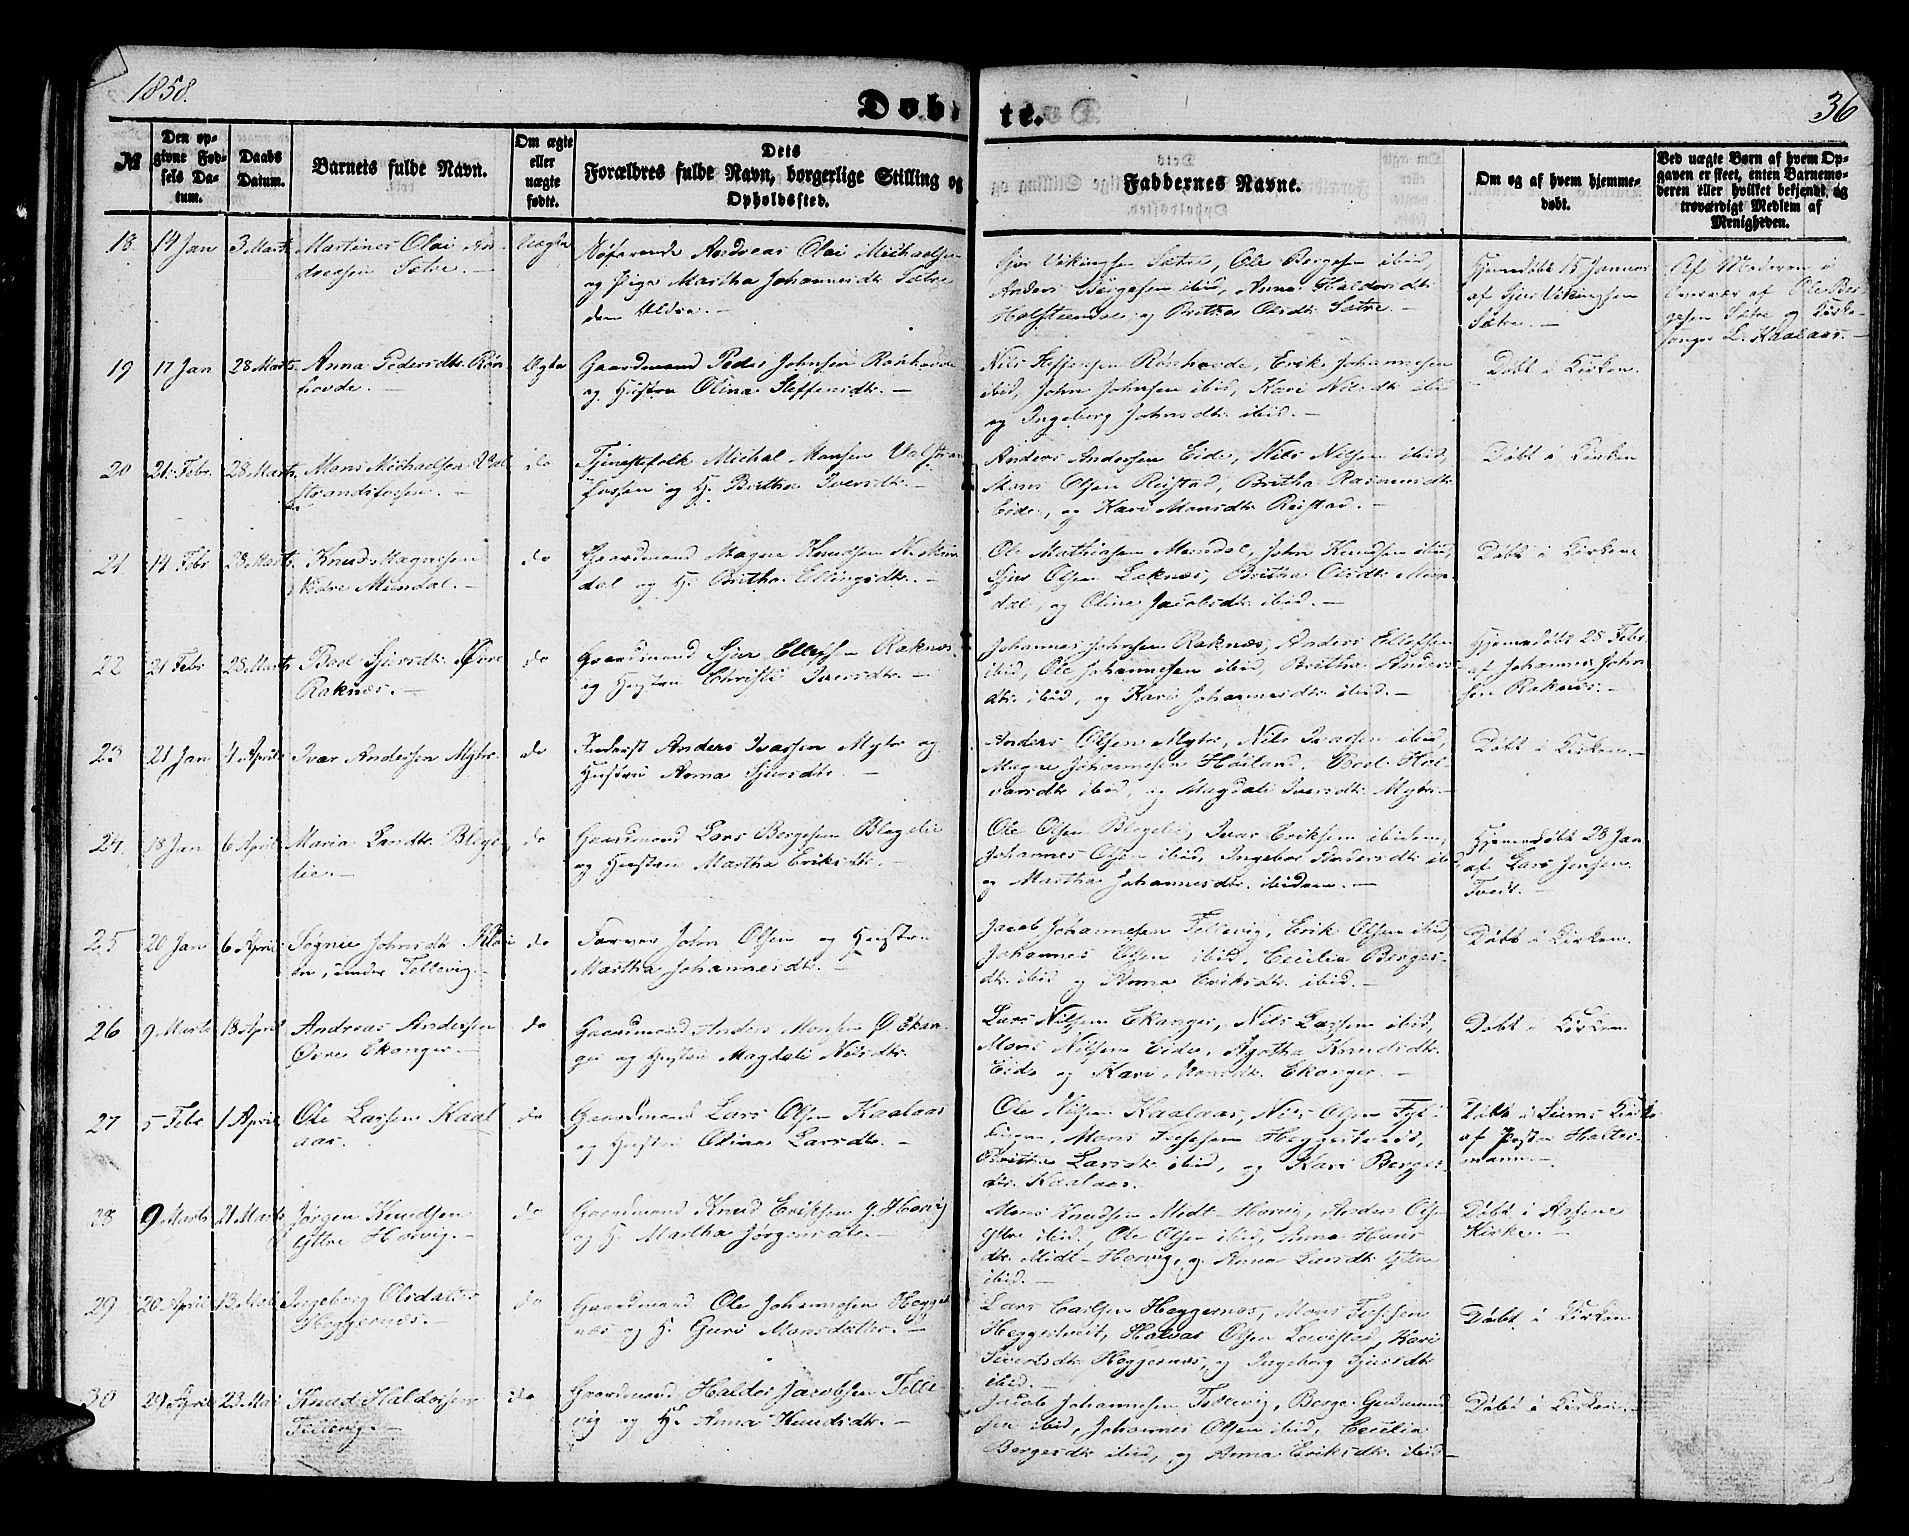 1858.
Døbte.
36
№
Den opgivne Fødsels Datum.
Daabs Datum.
Barnets fulde Navn.
Om ægte eller uægte fødte.
Dets Forældres fulde Navn, borgerlige Stilling og Opholdssted.
Faddernes Navne.
Om og af hvem hjemmedøbt.
Ved uægte Børn af hvem Opgaven er skeet, enten Barnemoderen eller hvilket bekjendt og troværdigt Medlem af Menigheden.
18. 14 Jan 3 Marts Martines Olai An-
dreassen Sætre. — Uægte
Søfarende Andreas Olai Michaelsen
og Pige Martha Johannesdtr. Sætre
den Ældre. —
Sjur Vikingsen Sætre, Ole Børgesen ibid,
Anders Børgesen ibid, Anna Haldorsdtr.
Holsteendal og Brithe Olsdtr. Sætre. —
Hjemmedøbt 15 Januar
af Sjur Vikingsen
Sætre. —
Af Moderen i
Overvær af Ole Bør-
gesen Sætre og Kirke-
sanger L. Kaalaas. —
19 17 Jan 28 Marts Anna Pedersdtr. Røn-
hovde. — Ægte
Gaardmand Peder Johnsen Rønhovde
og Hustru Olina Steffensdtr. —
Nils Steffensen Rønhovde, Erik Johannesen
ibid, John Johnsen ibid, Kari Nilsdtr. ibid
og Ingeborg Johnsdtr. ibid. —
Døbt i Kirken.
20 21 Febr. 28 Marts Mons Michaelsen Val-
strandsfossen. — do
Tjenestefolk Michal Monsen Valstran
fossen og H. Britha Iversdtr. —
Anders Andersen Eide, Nils Nilsen ibid,
Mons Olsen Reistad, Britha Rasmusdtr.
Eide, og Kari Monsdtr. Reistad. —
Døbt i Kirken
21 14 Febr 28 Marts Knud Magnesen
Nedre Mundal. — do
Gaardmand Magne Knudsen Ned. Mun
dal og H. Britha Ellingsdtr. —
Ole Mathiasen Mundal, John Knudsen ibid,
Sjur Olsen Raknæs, Britha Olsdtr. Mun-
dal, og Oline Jacobsdtr. ibid. —
Døbt i Kirken
22 21 Febr 28 Marts Boel Sjursdtr. Øvre
Raknæs. — do
Gaardmand Sjur Ellefsen Raknæs
og Hustru Christi Iversdtr. —
Johannes Johnsen Raknæs, Anders Ellefsen
ibid, Ole Johannesen ibid, Britha Anders-
dtr. ibid, og Kari Johannesdtr. ibid. —
Hjemmedøbt 25 Febr
af Johannes John
sen Raknæs. —
23 21 Jan 4 April Ivar Andersen Myhr. do
Inderst Anders Ivarsen Myhr og
Hustru Anna Sjursdtr. —
Anders Olsen Myhr, Nils Ivarsen ibid,
Magne Johannesen Høiland, Boel Hal-
vorsdtr. ibid, og Magdali Iversdtr. Myhr. —
Døbt i Kirken. —
24. 18 Jan 6 April Maria Larsdtr. Blege-
lie. — do
Gaardmand Lars Børgesen Blegelie
og Hustru Martha Eriksdtr. —
Ole Olsen Blegelie, Ivar Eriksen ibidem,
Johannes Olsen ibid, Ingebor Andersdtr ibid,
og Martha Johannesdtr. ibidem. —
Hjemmedøbt 28 Jan
af Lars Jensen
Tveit. —
25 20 Jan 6 April Søgnie Johnsdtr.
under Tellevig. — do
Farver John Olsen og Hustru
Martha Johannesdtr. —
Jacob Johannesen Tellevig, Erik Olsen ibid,
Johannes Olsen ibid, Cecilia Børges-
dtr. ibid og Anna Eriksdtr. ibid. —
Døbt i Kirken.
26 9 Marts 18 April Andreas Andersen
Øvre Ekanger. — do
Gaardmand Anders Monsen Ø Ekan
ger og Hustru Magdeli Nilsdtr.
Lars Nilsen Ekanger, Nils Larsen ibid,
Mons Nilsen Eide, Agatha Knudsdtr.
Eide og Kari Monsdtr. Ekanger. —
Døbt i Kirken
27 5 Febr 1 April Ole Larsen Kaal
aas. — do
Gaardmand Lars Olsen Kaalaas
og Hustru Olina Larsdtr. —
Ole Nilsen Kaalaas, Nils Olsen
Mons Hæggertveit,
Britha Larsdtr. ibid, og Kari Børges-
dtr. Kaalaas.
Døbt i Seims Kirke
af Pastor Halter-
mann. —
28 9 Marts 21 Marts Jørgen Knudsen
Yttre Horvig. — do
Gaardmand Knud Eriksen Y. Horvig
og H. Martha Jørgensdtr. —
Mons Knudsen Midt-Horvig, Anders Olsen
Yttre ibid, Ole Olsen ibid, Anna Hans
dtr. Midt-Horvig, og Anna Larsdtr Yttre
ibid. —
Døbt i Asene
Kirke. —
29 20 April 13 Mai Ingeborg Olsdatter
Heggernæs. — do
Gaardmand Ole Johannesen Hegger
næs og H. Guro Monsdatter. —
Lars Carlsen Heggernæs, Mons
Heggertveit, Halvor Olsen Kari
Sivertsdtr. Heggernæs, og Ingeborg Sjursdtr
ibid. —
Døbt i Kirken
30 24 April 23 Mai Knud Haldorsen
Tellevig. — do
Gaardmand Haldor Jacobsen Telle
vig og H. Anna Knudsdtr. —
Jacob Johannesen Tellevig, Børge Gudmund
sen ibid, Johannes Olsen ibid, Cecilia
Børgesdtr. ibid, og Anna Eriksdtr. ibid —
Døbt i Kirken. —